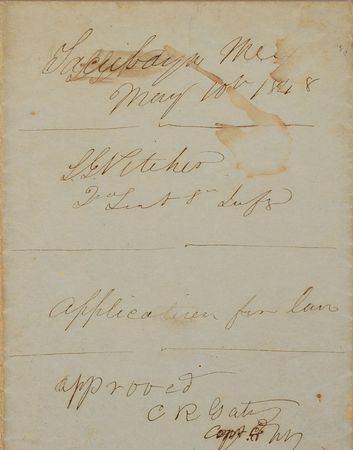 Tacubaya Mex
May 10th 1848
L. G. Pitcher
2d Lieut 8th Inf
application for leave
approved
C R Gates
Capt 8th Inf